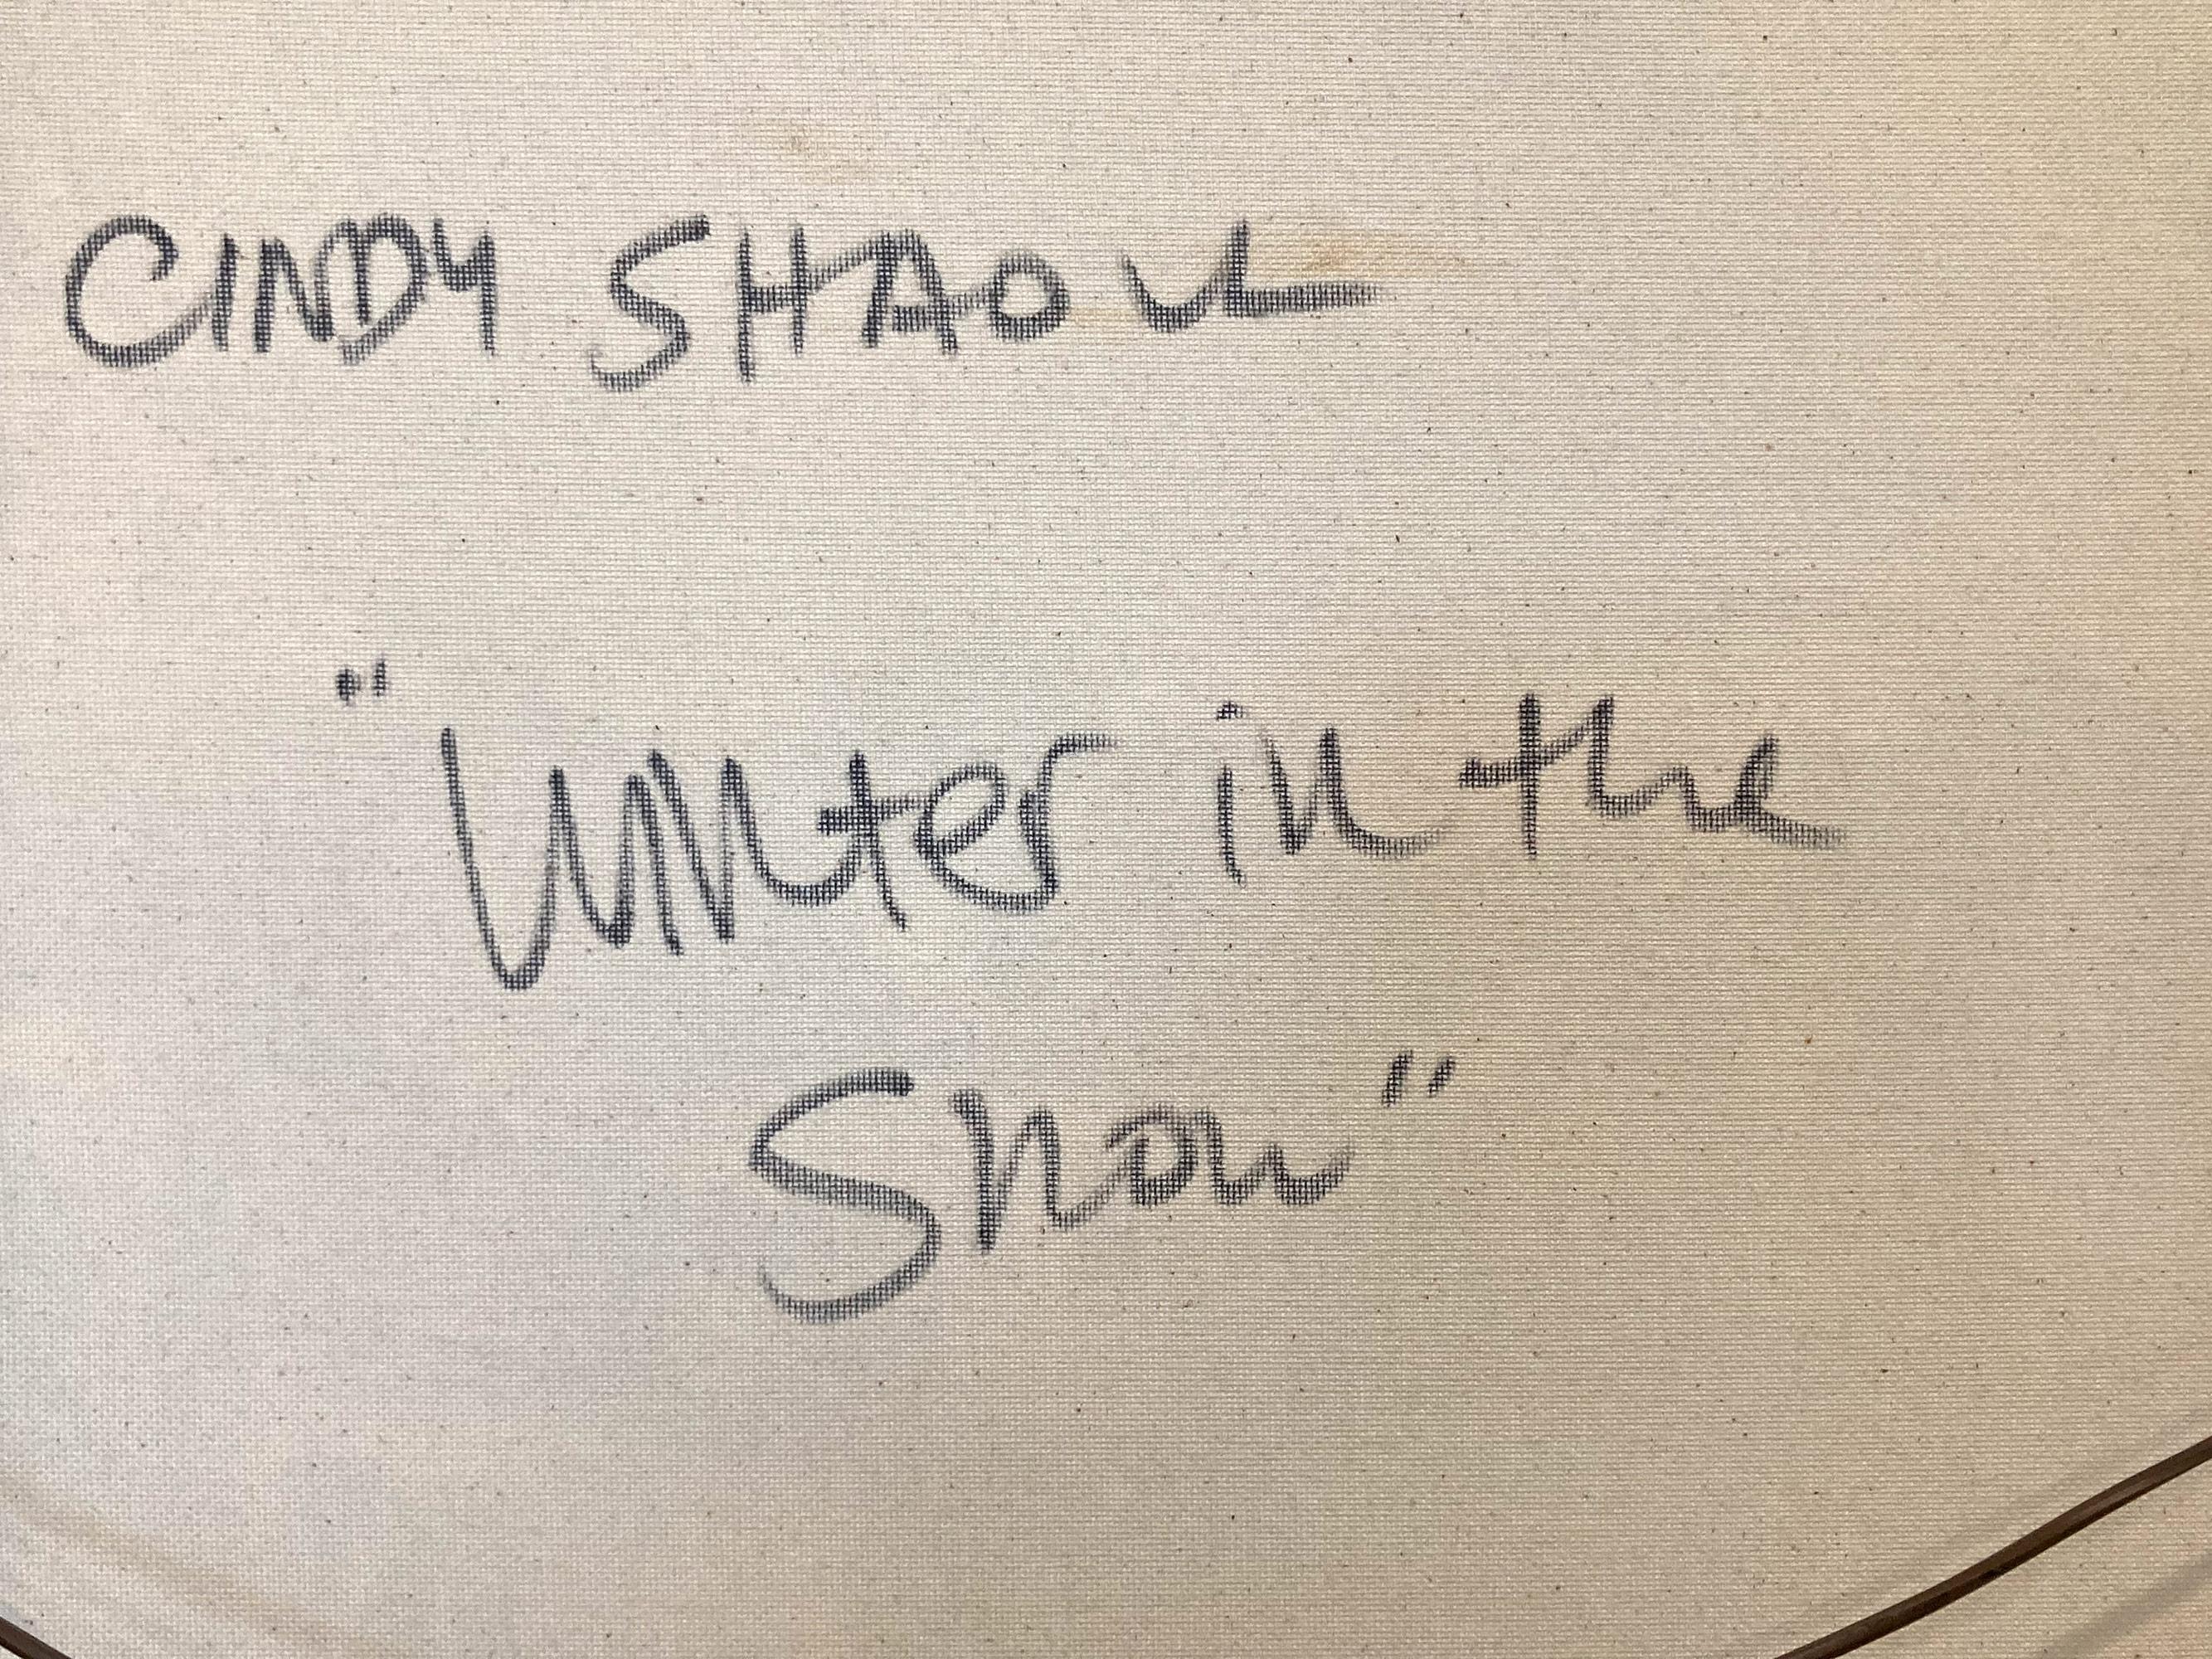 CINDY SHAOUL
"Winter in the
Snow"